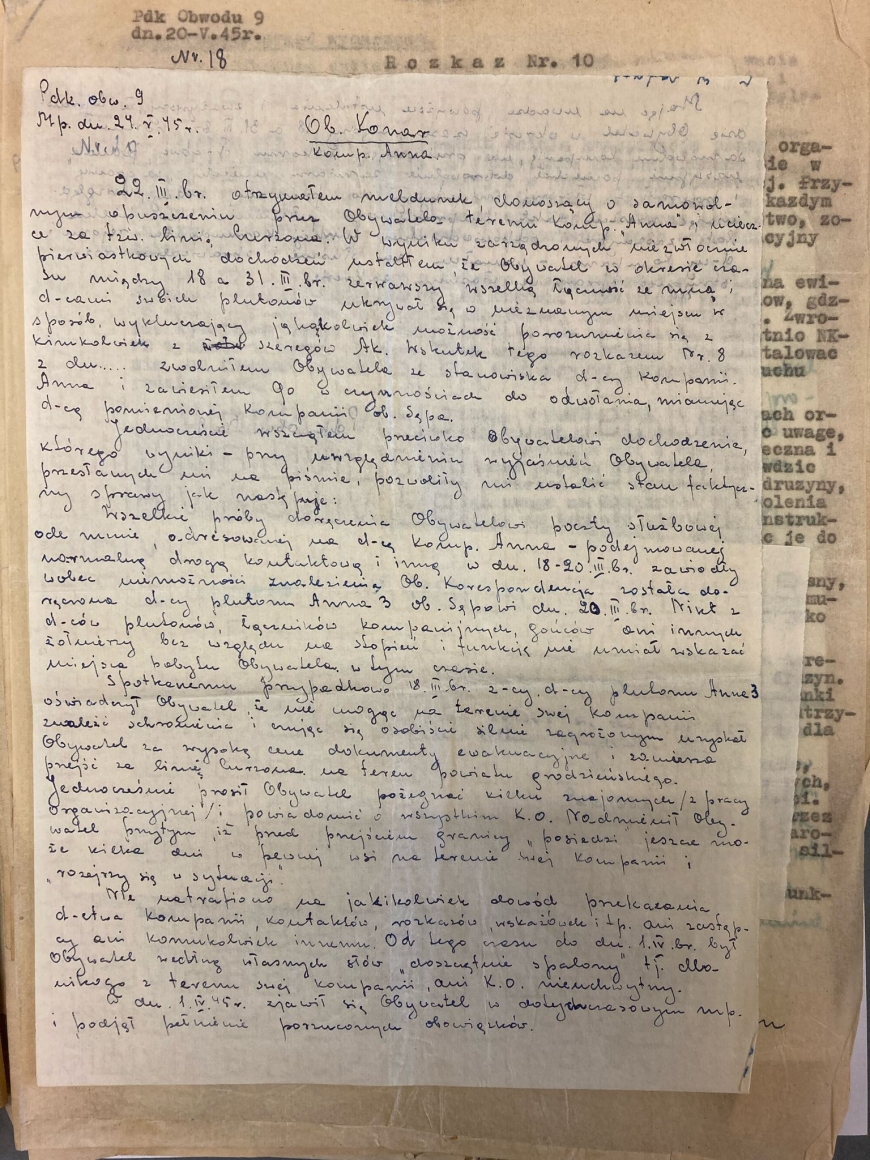 Pdk Obwodu 9
dn. 20-V.45r.
Nr. 18
Rozkaz Nr. 10
Pdk. obw. 9
M.p. dn. 24.V.45r.
Ob. Konar
Komp. Anna
22.III.br. otrzymałem meldunek, donoszący o samowol-
nym opuszczeniu przez Obywatela terenu Komp. "Anna" i uciecz-
ce za tzw. linię Curzona. W wyniku zarządzonych niezwłocznie
pierwiastkowych dochodzeń ustaliłem, że Obywatel w okresie cza-
su między 18 a 31.III.br. zerwawszy wszelką łączność ze mną i
d-cami swoich plutonów ukrywał się w nieznanym miejscu w
sposób, wykluczający jakąkolwiek możność porozumienia się z
kimkolwiek z szeregów Ak. Wskutek tego rozkazem Nr. 8
z dn..... zwolniłem Obywatela ze stanowiska d-cy Kompanii.
Anna i zawiesiłem Go w czynnościach do odwołania, mianując
d-cą pomienionej Kompanii ob. Sępa.
Jednocześnie wszcząłem przeciwko Obywatelowi dochodzenia,
którego wyniki - przy uwzględnieniu wyjaśnień Obywatela,
przesłanych mi na piśmie, pozwoliły mi ustalić stan faktycz-
ny sprawy jak następuje:
Wszelkie próby doręczenia Obywatelowi poczty służbowej
ode mnie, adresowanej na d-cę Komp. Anna - podejmowanej
normalną drogą kontaktową i inną w dn. 18-20.III.br. zawiodły
wobec niemożności znalezienia Ob. Korespondencja została do-
ręczona d-cy plutonu Anna 3 ob. Sępowi dn. 20.III.br. Nikt z
d-ców plutonów, łączników kompanijnych, gońców ani innych
żołnierzy bez względu na stopień i funkcję nie umiał wskazać
miejsca pobytu Obywatela w tym czasie.
Spotkanemu przypadkowo 18.III.br. z-cy d-cy plutonu Anna 3
oświadczył Obywatel, że nie mogąc na terenie swej kompanii
znaleść schronienia i czując się osobiście silnie zagrożonym uzyskał
Obywatel za wysoką cenę dokumenty ewakuacyjne i zamierza
przejść za linię Curzona na teren powiatu grodzieńskiego.
Jednocześnie prosił Obywatel pożegnać kilku znajomych /z pracy
organizacyjnej/ i powiadomić o wszystkim K.O. Nadmienił Oby-
watel przytym, iż przed przejściem granicy "posiedzi" jeszcze mo-
że kilka dni w pewnej wsi na terenie swej kompanii i
"rozejrzy się w sytuacji".
Nie natrafiono na jakikolwiek dowód przekazania
d-ctwa kompanii, kontaktów, rozkazów, wskazówek itp. ani zastęp-
cy ani komukolwiek innemu. Od tego czasu do dn. 1.IV.br. był
Obywatel według własnych słów "doszczętnie spalony" tj. dla
nikogo z terenu swej kompanii, ani K.O. nieuchwytny.
W dn. 1.IV.45r. zjawił się Obywatel w dotychczasowym mp.
i podjął pełnienie porzuconych obowiązków.